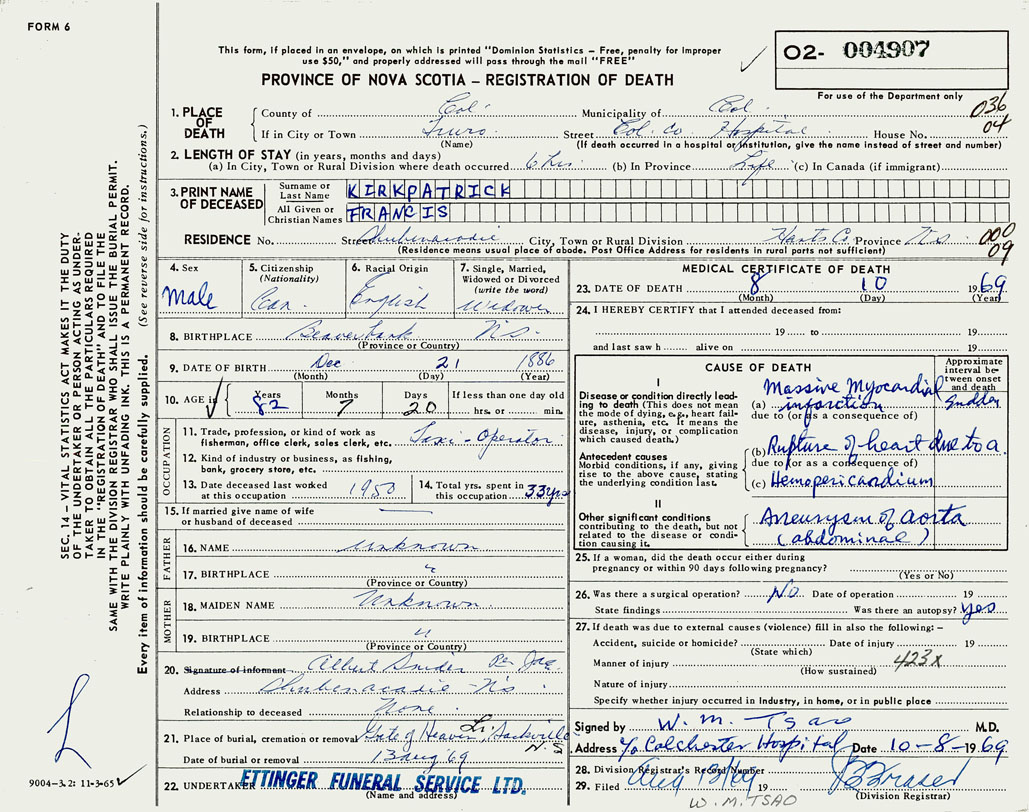 FORM 6
This form, if placed in an envelope, on which is printed "Dominion Statistics – Free, penalty for improper
use $50," and properly addressed will pass through the mail "FREE"
O2- 004907
PROVINCE OF NOVA SCOTIA – REGISTRATION OF DEATH
For use of the Department only
036
04
1. PLACE OF DEATH
County of Col. Municipality of Col.
If in City or Town Truro Street Col. Co. Hospital House No.
(Name) (If death occurred in a hospital or institution, give the name instead of street and number)
2. LENGTH OF STAY (in years, months and days)
(a) In City, Town or Rural Division where death occurred 6 hrs. (b) In Province Life (c) In Canada (if immigrant)
3. PRINT NAME OF DECEASED
Surname or Last Name KIRKPATRICK
All Given or Christian Names FRANCIS
RESIDENCE No. Street Shubenacadie City, Town or Rural Division Hants Co. Province N.S.
000
09
(Residence means usual place of abode. Post Office Address for residents in rural parts not sufficient)
4. Sex
Male
5. Citizenship
(Nationality)
Can
6. Racial Origin
English
7. Single, Married,
Widowed or Divorced
(write the word)
Widower
8. BIRTHPLACE Beaverbank N.S.
(Province or Country)
9. DATE OF BIRTH Dec 21 1886
(Month) (Day) (Year)
10. AGE in
Years Months Days If less than one day old
82 7 20 hrs. or min.
OCCUPATION
11. Trade, profession or kind of work as
fisherman, office clerk, sales clerk, etc. Taxi-Operator
12. Kind of industry or business, as fishing,
bank, grocery store, etc.
13. Date deceased last worked
at this occupation 1950
14. Total yrs. spent in
this occupation 33 yrs
15. If married give name of wife
or husband of deceased —
FATHER
16. NAME Unknown
17. BIRTHPLACE "
(Province or Country)
MOTHER
18. MAIDEN NAME Unknown
19. BIRTHPLACE "
(Province or Country)
20. Signature of informant Albert Snider Per
Address Shubenacadie N.S.
Relationship to deceased None
21. Place of burial, cremation or removal Gate of Heaven, Li. Sackville N.S.
Date of burial or removal 13 Aug '69
22. UNDERTAKER ETTINGER FUNERAL SERVICE LTD.
(Name and address)
MEDICAL CERTIFICATE OF DEATH
23. DATE OF DEATH 8 10 1969
(Month) (Day) (Year)
24. I HEREBY CERTIFY that I attended deceased from:
19 to 19
and last saw h alive on 19
CAUSE OF DEATH
Approximate
interval be-
tween onset
and death
I
Disease or condition directly lead-
ing to death (This does not mean
the mode of dying, e.g., heart fail-
ure, asthenia, etc. It means the
disease, injury, or complication
which caused death.)
(a) Massive Myocardial infarction Sudden
due to (or as a consequence of)
Antecedent causes
Morbid conditions, if any, giving
rise to the above cause, stating
the underlying condition last.
(b) Rupture of heart due to a.
due to (or as a consequence of)
(c) Hemopericardium
II
Other significant conditions
contributing to the death, but not
related to the disease or condi-
tion causing it.
Aneurysm of aorta
(abdominal)
25. If a woman, did the death occur either during
pregnancy or within 90 days following pregnancy?
(Yes or No)
26. Was there a surgical operation? No. Date of operation 19
State findings Was there an autopsy? Yes
27. If death was due to external causes (violence) fill in also the following: –
Accident, suicide or homicide? Date of injury 19
(State which)
Manner of injury 423x
(How sustained)
Nature of injury
Specify whether injury occurred in industry, in home, or in public place
Signed by W. M. Tsao M.D.
Address c/o Colchester Hospital Date 10-8-1969
28. Division Registrar's Record Number
29. Filed Aug 13/69 19
(Division Registrar)
W.M. TSAO
SEC. 14 – VITAL STATISTICS ACT MAKES IT THE DUTY
OF THE UNDERTAKER OR PERSON ACTING AS UNDER-
TAKER TO OBTAIN ALL THE PARTICULARS REQUIRED
IN THE "REGISTRATION OF DEATH" AND TO FILE THE
SAME WITH THE DIVISION REGISTRAR WHO SHALL ISSUE THE BURIAL PERMIT.
WRITE PLAINLY WITH UNFADING INK. THIS IS A PERMANENT RECORD.
Every item of information should be carefully supplied. (See reverse side for instructions.)
9004-3.2: 11-3-65